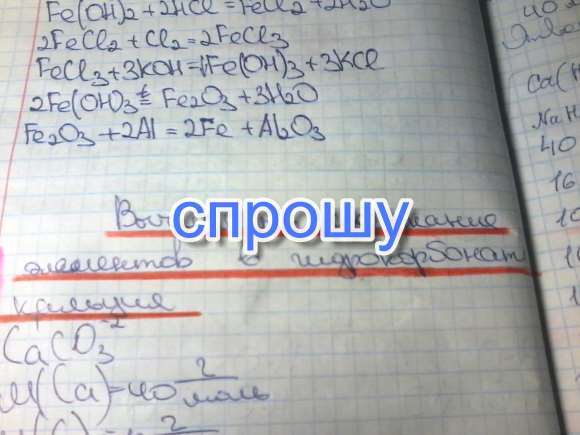 Fe(OH)2 + 2HCl = FeCl2 + 2H2O
2FeCl2 + Cl2 = 2FeCl3
FeCl3 + 3KOH = Fe(OH)3 + 3KCl
2Fe(OH)3 t= Fe2O3 + 3H2O
Fe2O3 + 2Al = 2Fe + Al2O3
спрошу
элементов в гидрокорбонат
кальция
CaCO3-2
M(Ca)=40 г/моль
40
Ca(
NaH
40
16